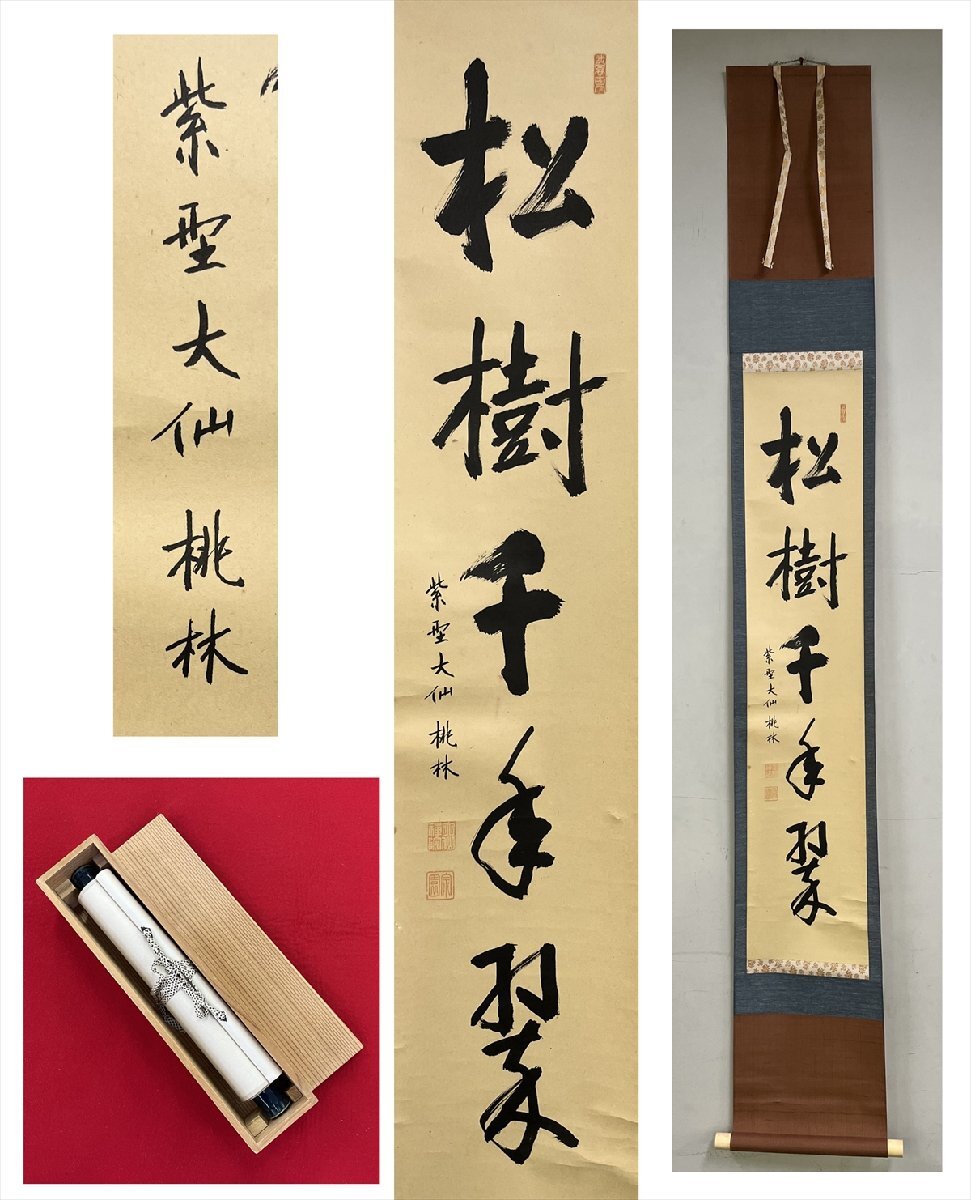 紫野大仙 桃林
松樹千年翠
紫野大仙 桃林
松樹千年翠
紫野大仙 桃林